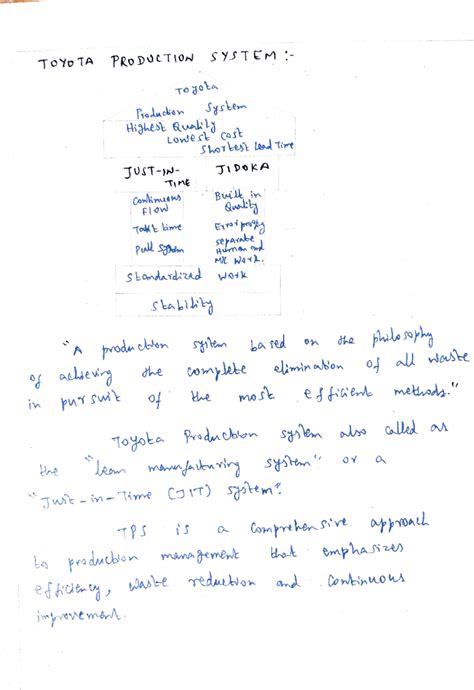 TOYOTA PRODUCTION SYSTEM :-
Toyota
Production System
Highest Quality
Lowest Cost
Shortest Lead Time
JUST-IN-TIME
JIDOKA
Continuous Flow
Built in Quality
Takt time
Error profing
Pull System
separate Human and M/C Work.
Standardized Work
Stability
"A production system based on the philosophy
of achieving the complete elimination of all waste
in pursuit of the most efficient methods."
Toyota Production system also called as
the "lean manufacturing system" or a
"Just-in-Time (JIT) system".
TPS is a comprehensive approach
to production management that emphasizes
efficiency, waste reduction and continuous
improvement.